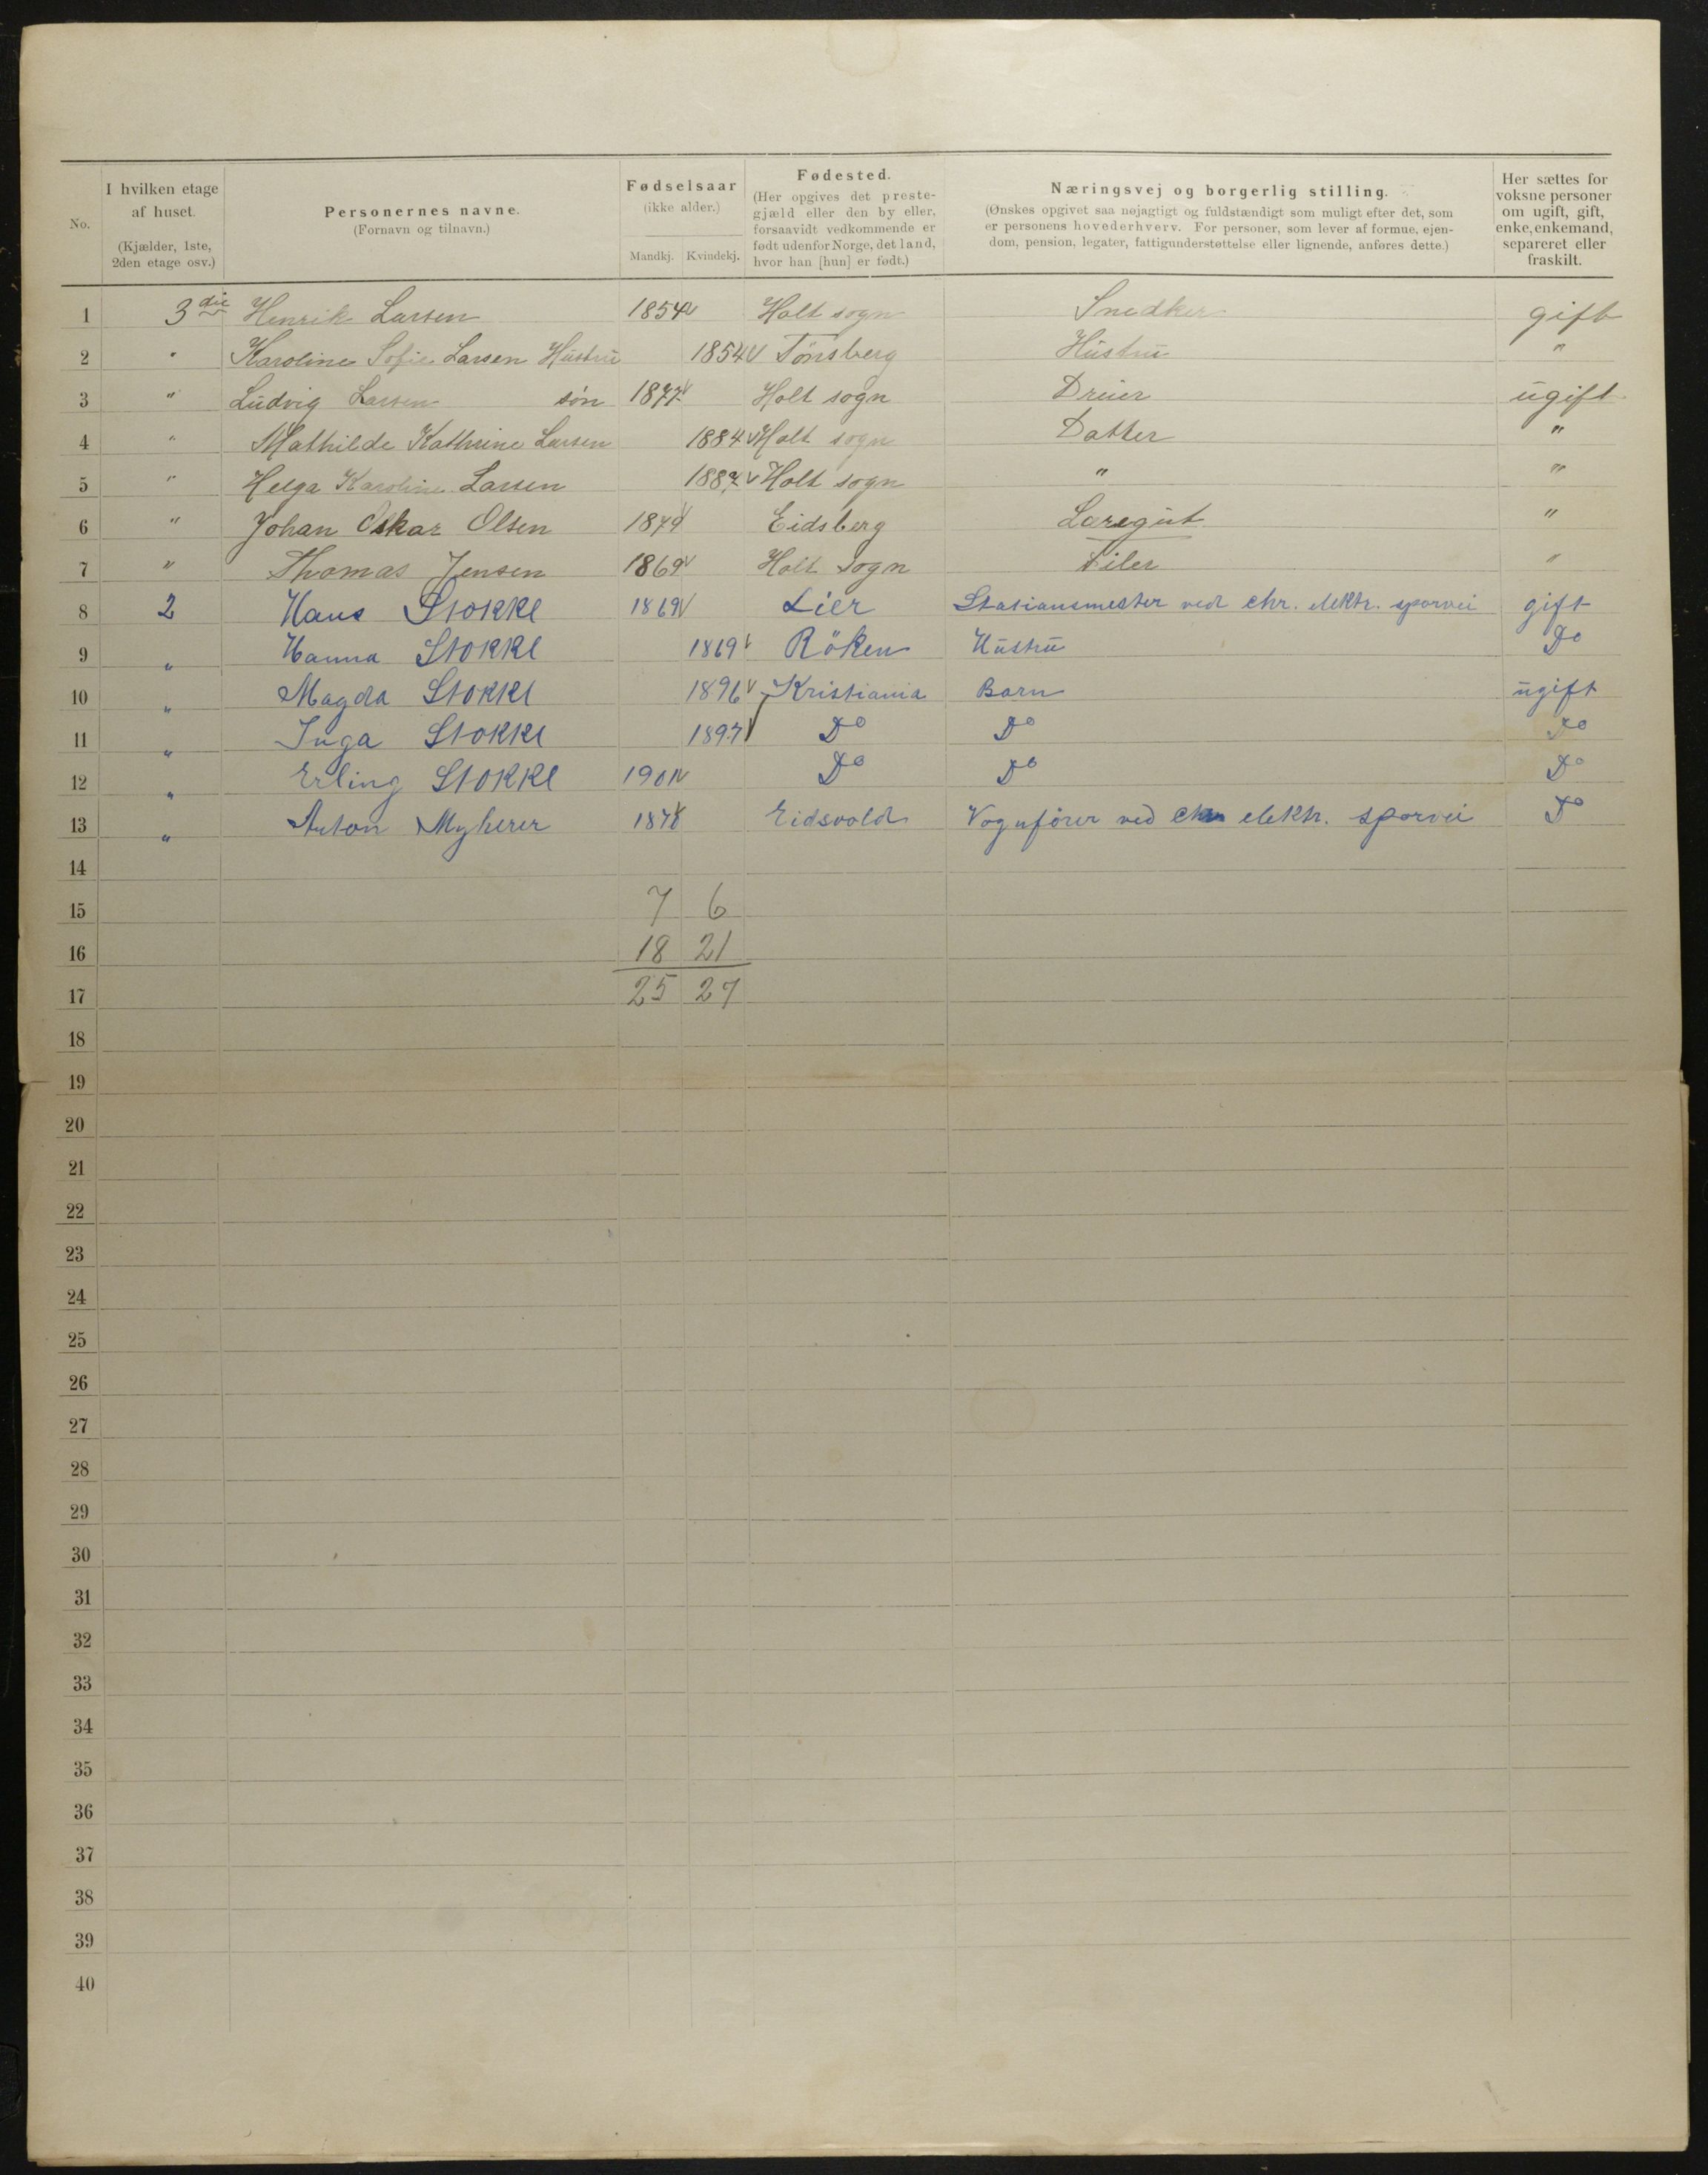 No.
I hvilken etage af huset. (Kjælder, 1ste, 2den etage osv.)
Personernes navne. (Fornavn og tilnavn.)
Fødselsaar (ikke alder.) Mandkj. Kvindekj.
Fødested. (Her opgives det prestegjæld eller den by eller, forsaavidt vedkommende er født udenfor Norge, det land, hvor han [hun] er født.)
Næringsvej og borgerlig stilling.
(Ønskes opgivet saa nøjagtigt og fuldstændigt som muligt efter det, som
er personens hovederhverv. For personer, som lever af formue, ejen-
dom, pension, legater, fattigunderstøttelse eller lignende, anføres dette.)
Her sættes for voksne personer om ugift, gift, enke, enkemand, separeret eller fraskilt.
1 3die Henrik Larsen 1854 Holt sogn Snedker gift
2 " Karoline Sofie Larsen Hustru 1854 Tönsberg Hustru "
3 " Ludvig Larsen sön 1877 Holt sogn Dreier ugift
4 " Mathilde Kathrine Larsen 1884 Holt sogn Datter "
5 " Helga Karoline Larsen 1887 Holt sogn " "
6 " Johan Oskar Olsen 1879 Eidsberg Læregut "
7 " Thomas Jensen 1869 Holt sogn Filer "
8 2 Hans Stokke 1869 Lier Stasiansmester ved chr. elektr. sporvei gift
9 " Hanna Stokke 1869 Röken Hustru Do
10 " Magda Stokke 1896 Kristiania Barn ugift
11 " Inga Stokke 1897 Do Do Do
12 " Erling Stokke 1901 Do Do Do
13 " Anton Myherer 1878 Eidsvold Vognförer ved chr elektr. sporvei Do
14
15 7 6
16 18 21
17 25 27
18
19
20
21
22
23
24
25
26
27
28
29
30
31
32
33
34
35
36
37
38
39
40